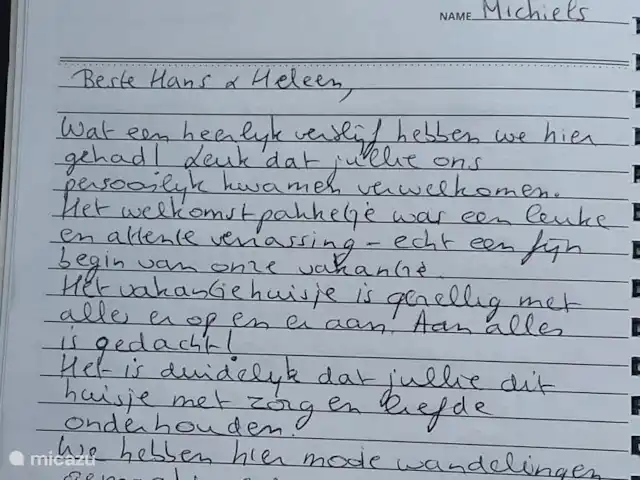 NAME Michiels
Beste Hans & Heleen,
Wat een heerlijk verblijf hebben we hier
gehad! Leuk dat jullie ons
persoonlijk kwamen verwelkomen.
Het welkomstpakketje was een leuke
en attente verrassing - echt een fijn
begin van onze vakantie.
Het vakantiehuisje is gezellig met
alles er op en er aan. Aan alles
is gedacht!
Het is duidelijk dat jullie dit
huisje met zorg en liefde
onderhouden.
We hebben hier mooie wandelingen
micazu